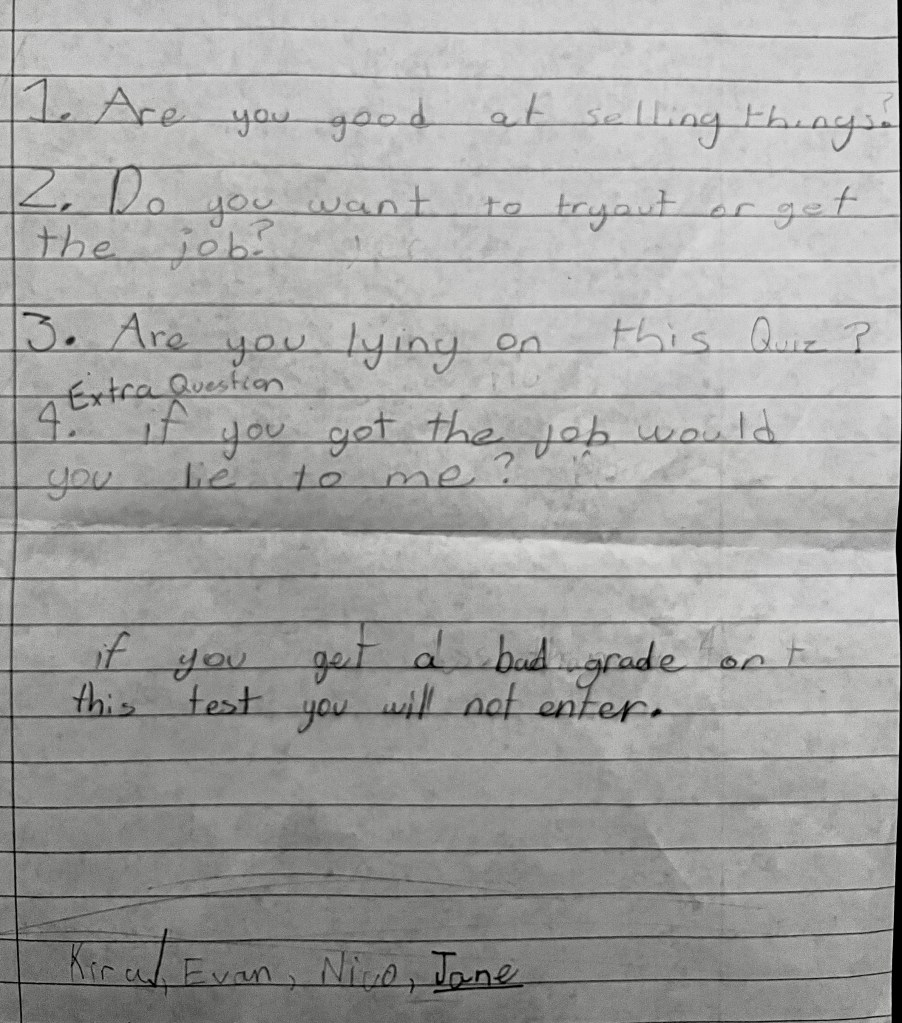 1. Are you good at selling things?
2. Do you want to tryout or get
the job?
3. Are you lying on this Quiz?
Extra Question
4. if you got the job would
you lie to me?
if you get a bad grade on
this test you will not enter.
Evan, Nico, Jane